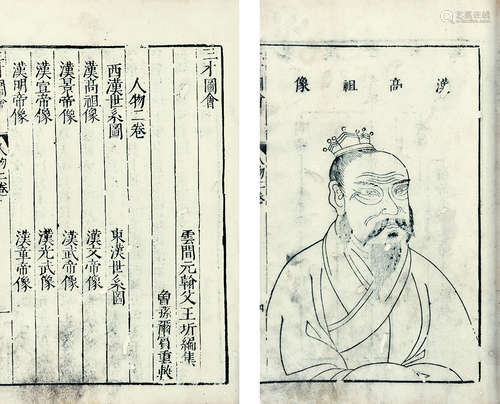 三才圖會
人物二卷
雲間元翰父王圻編集
曾孫爾賓重較
西漢世系圖
東漢世系圖
漢高祖像
漢文帝像
漢景帝像
漢武帝像
漢宣帝像
漢光武像
漢明帝像
漢章帝像
三才圖會
人物二卷
漢高祖像
圖會
人物二卷